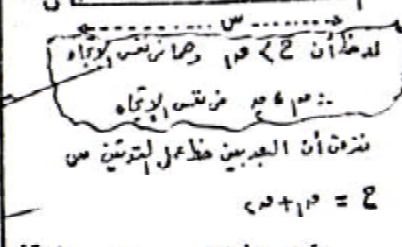 س
لاحظ أن ح > ق١ وهما في نفس الاتجاه
∴ ق١ ، ق٢ في نفس الاتجاه
نفرض أن البعد بين خطى عمل القوتين س
ح = ق١ + ق٢